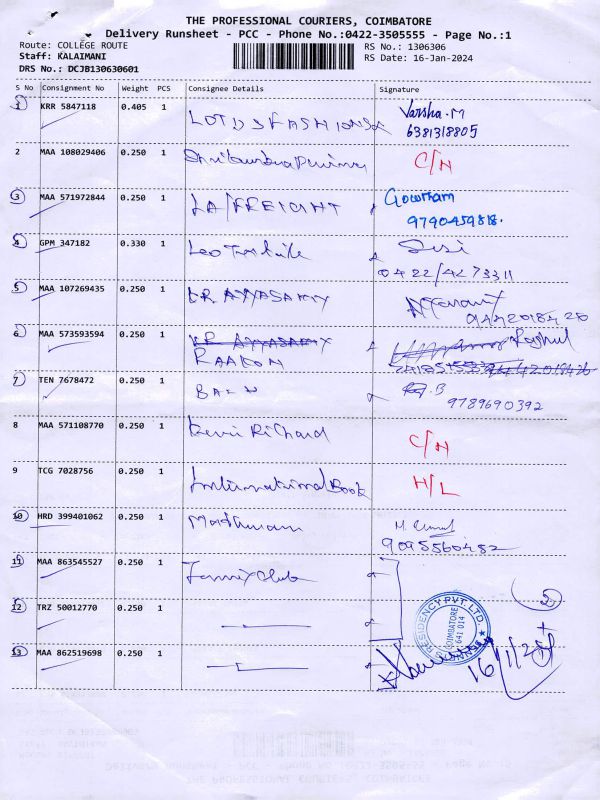 THE PROFESSIONAL COURIERS, COIMBATORE
Delivery Runsheet - PCC - Phone No.:0422-3505555 - Page No.:1
Route: COLLEGE ROUTE RS No.: 1306306
Staff: KALAIMANI RS Date: 16-Jan-2024
DRS No.: DCJB130630601
S No Consignment No Weight PCS Consignee Details Signature
1 KRR 5847118 0.405 1 LOTUS FASHIONS Varsha.M
6381318805
2 MAA 108029406 0.250 1 C/H
3 MAA 571972844 0.250 1 LA/FREIGHT Gowtham
9790459818.
4 GPM 347182 0.330 1 Leo Textile Sisi
0422/4273311
5 MAA 107269435 0.250 1 KR AYYASAMY
9442018420
6 MAA 573593594 0.250 1 KR AYYASAMY Raghul
RAAKOM
7 TEN 7678472 0.250 1 .B
9789690392
8 MAA 571108770 0.250 1 Kevin Richard C/H
9 TCG 7028756 0.250 1 International Book H/L
10 HRD 399401062 0.250 1 M.
9095560482
11 MAA 863545527 0.250 1 Club
12 TRZ 50012770 0.250 1
13 MAA 862519698 0.250 1
RESIDENCY PVT. LTD.
COIMBATORE
641 014
16/1/24